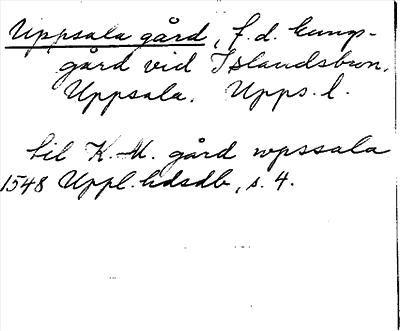 Uppsala gård, f.d. kungs-
gård vid Islandsbron,
Uppsala. Upps. l.
til K. M. gård wpssala
1548 Uppl. hdsdb, s. 4.